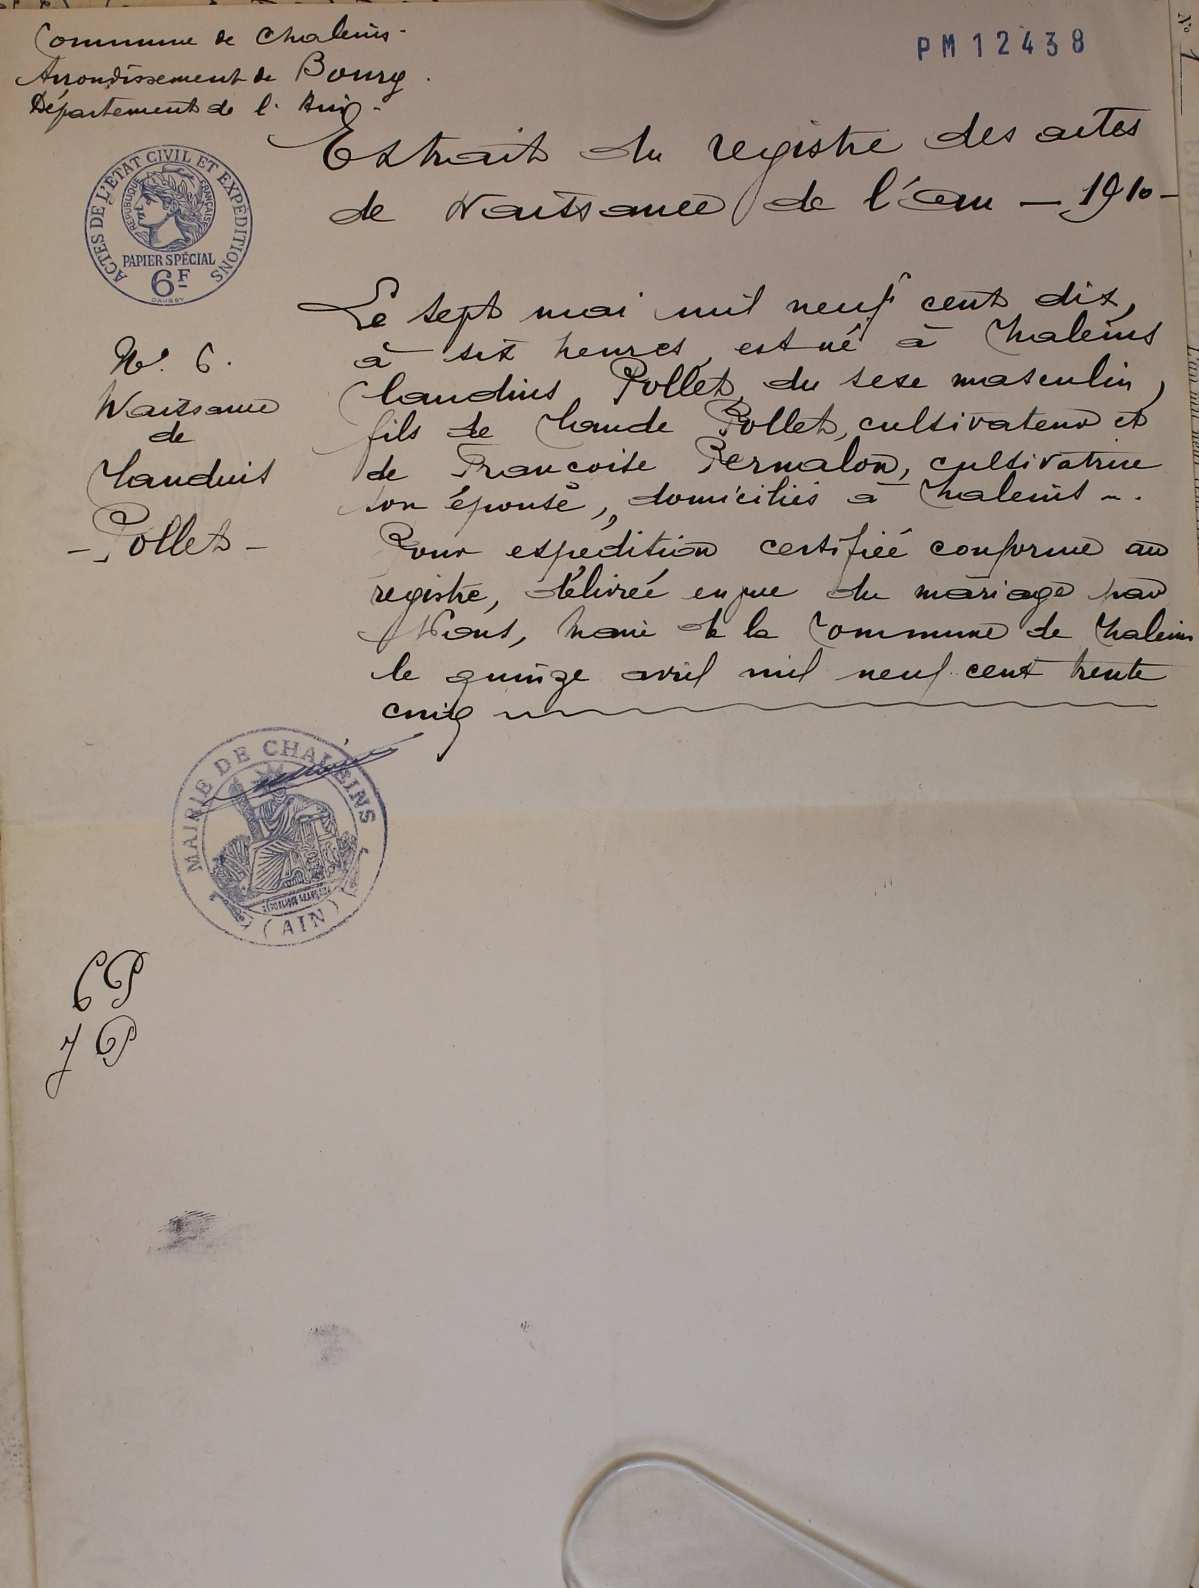 Commune de Chaleins
Arrondissement de Bourg
Département de l'Ain
PM12438
Extrait du registre des actes
de Naissance de l'an - 1910 -
ACTES DE L'ÉTAT CIVIL ET EXPÉDITIONS
RÉPUBLIQUE FRANÇAISE
PAPIER SPÉCIAL
6F
N° 6.
Naissance
de
Claudius
- Pollet -
Le sept mai mil neuf cent dix,
à six heures, est né à Chaleins
Claudius Pollet, du sexe masculin,
fils de Claude Pollet, cultivateur et
de Françoise Bernalon, cultivatrice
son épouse, domiciliés à Chaleins -.
Pour expédition certifiée conforme au
registre, délivrée en vue du mariage par
Nous, Maire de la Commune de Chaleins
le quinze avril mil neuf cent trente
cinq
MAIRIE DE CHALEINS
(AIN)